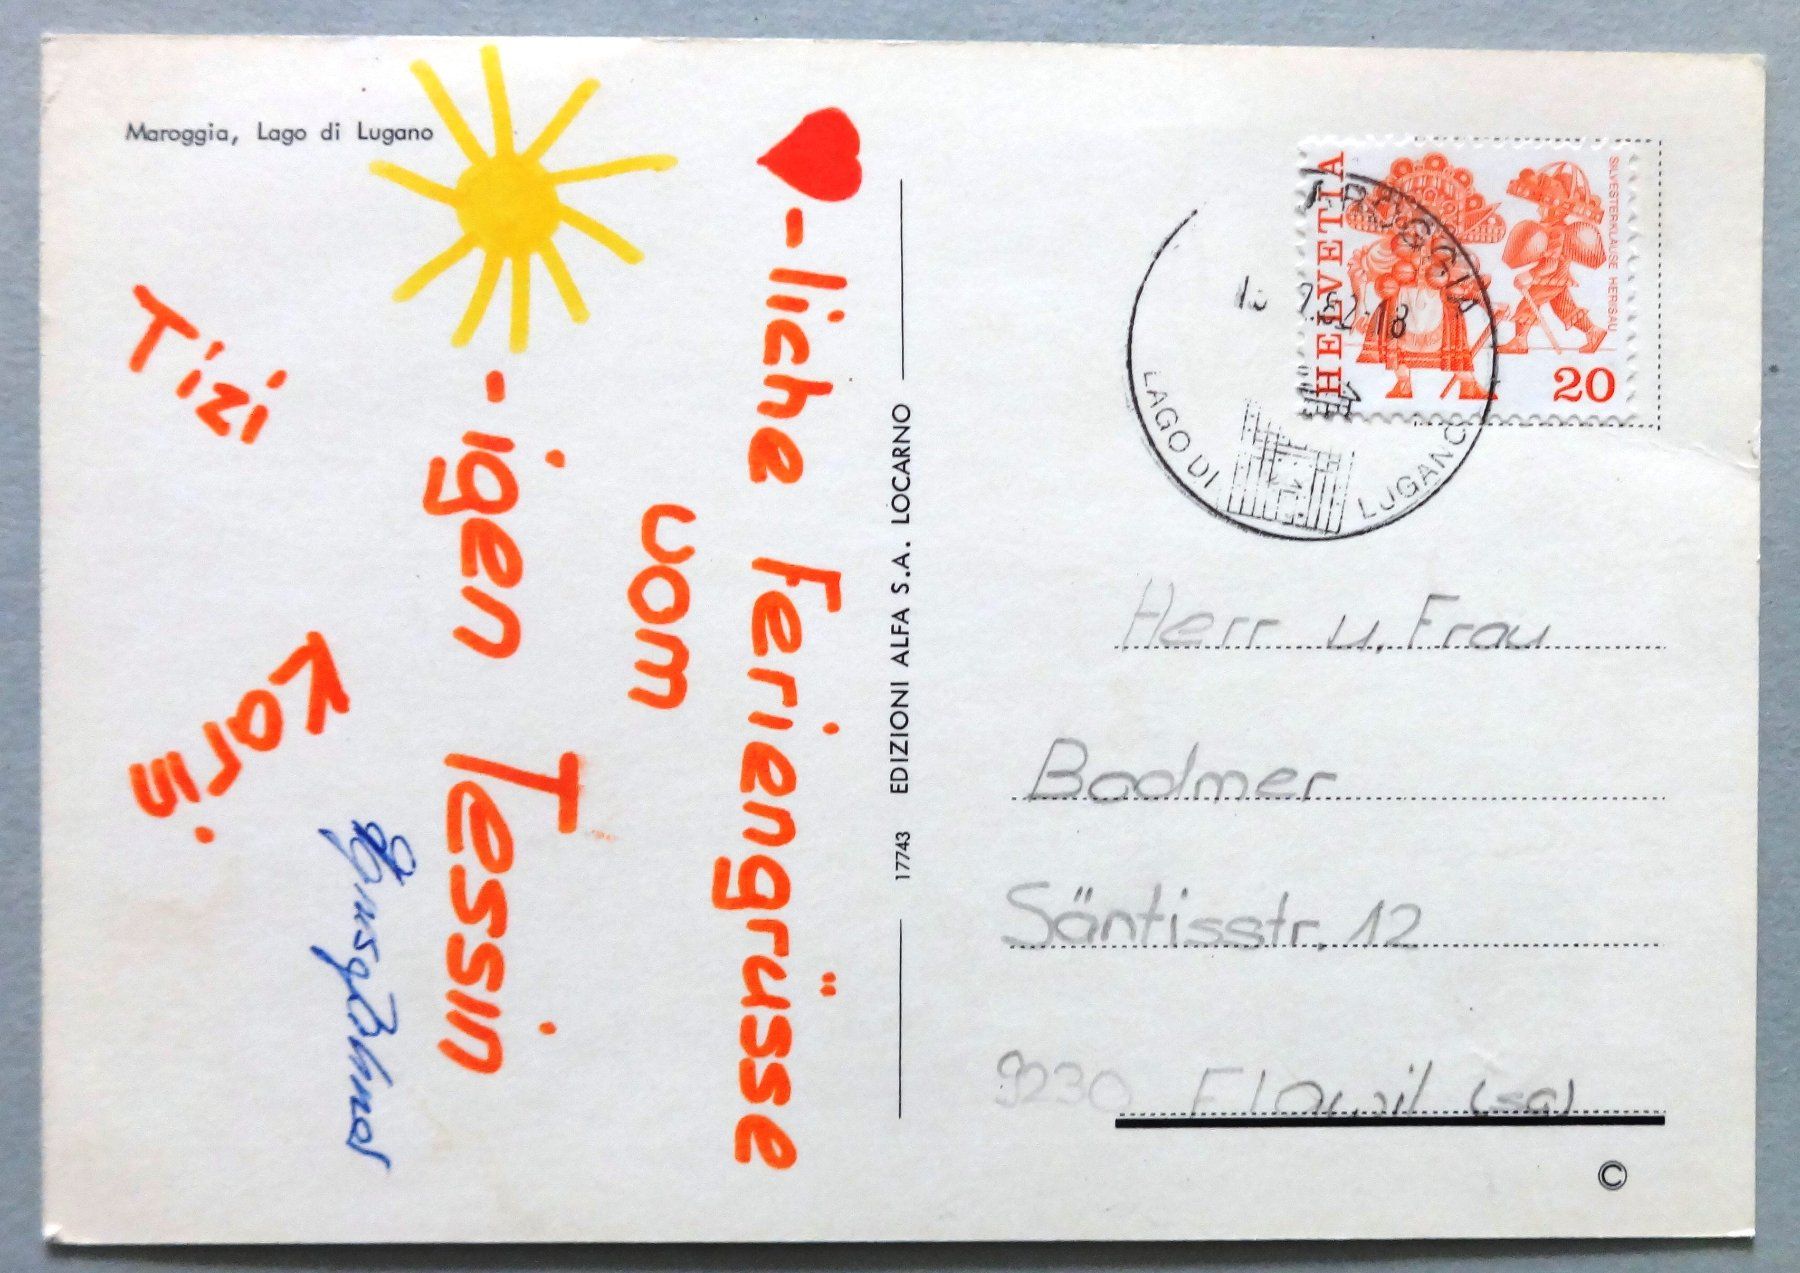 Maroggia, Lago di Lugano
-liche Feriengrüsse
vom
-igen Tessin
Tizi
Karin
17743 EDIZIONI ALFA S.A. LOCARNO
HELVETIA
SILVESTERKLÄUSE HERISAU
20
ROGGIA
LAGO DI LUGANO
Herr u. Frau
Badmer
Säntisstr. 12
9230 Flawil (SG)
©